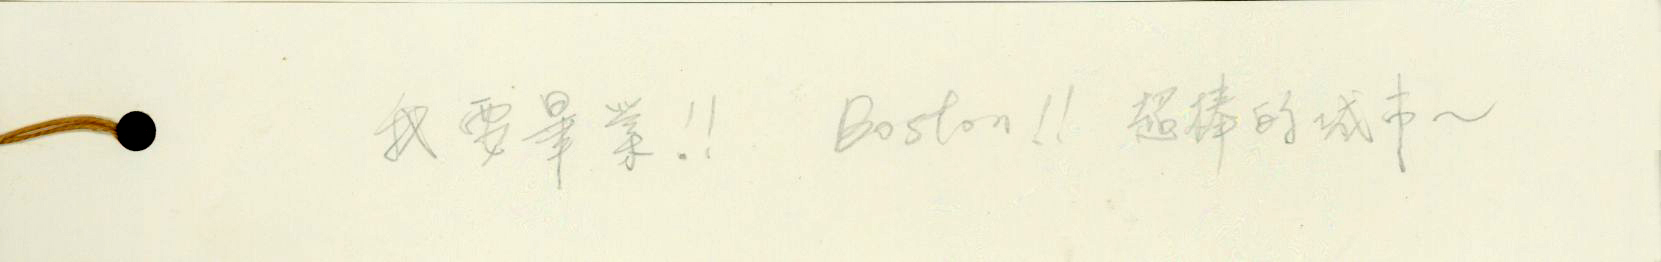 我要畢業!! Boston!! 超棒的城市～